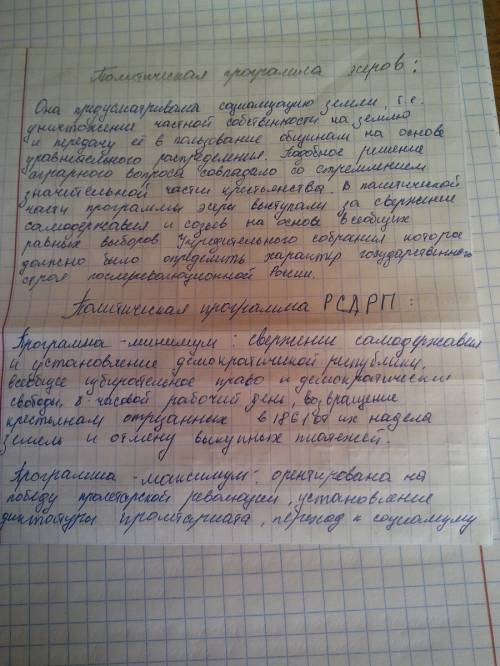 Политическая программа эсеров:
Она предусматривала социализацию земли, т.е.
уничтожение частной собственности на землю
и передачу её в пользование общинам на основе
уравнительного распределения. Подобное решение
аграрного вопроса совпадало со стремлением
значительной части крестьянства. В политической
части программы эсеры выступали за свержение
самодержавия и созыв на основе всеобщих
равных выборов Учредительного собрания которое
должно было определить характер государственного
строя послереволюционной России.
Политическая программа РСДРП:
Программа-минимум: свержение самодержавия
и установление демократической республики,
всеобщее избирательное право и демократические
свободы, 8-часовой рабочий день, возвращение
крестьянам отрезанных в 1861 от их надела
земель и отмену выкупных платежей.
Программа-максимум: орентирована на
победу пролетарской революции, установление
диктатуры пролетариата, переход к социализму